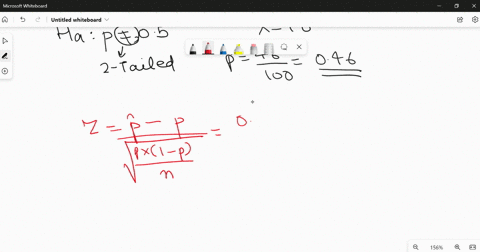 Microsoft Whiteboard
Untitled whiteboard
Ha: p ≠ 0.5
2-Tailed
p = 46/100 = 0.46
Z = p̂ - p / √(p×(1-p)/n) = 0.
156%